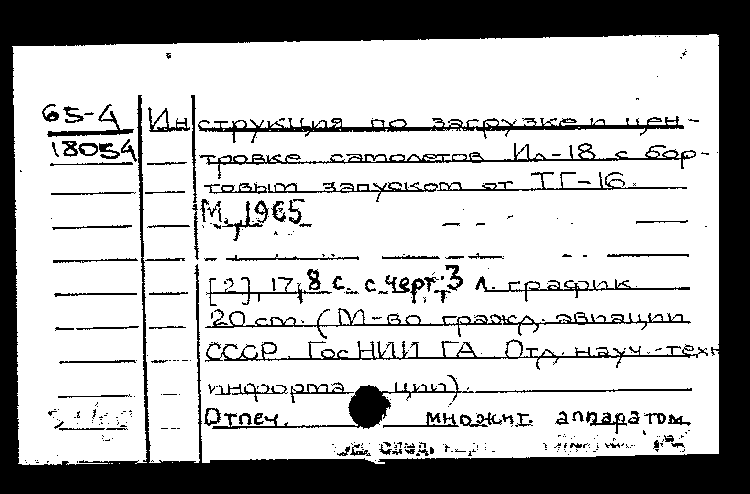 65-4
18054
Инструкция по загрузке и цен-
тровке самолетов Ил-18 с бор-
товым запуском от ТГ-16.
М., 1965
[2], 17, 8 с. с черт; 3 л. график
20 cm. (М-во гражд. авиации
СССР. ГосНИИ ГА. Отд. науч.-техн
информа ции).
Отпеч. множит. аппаратом
См. след.